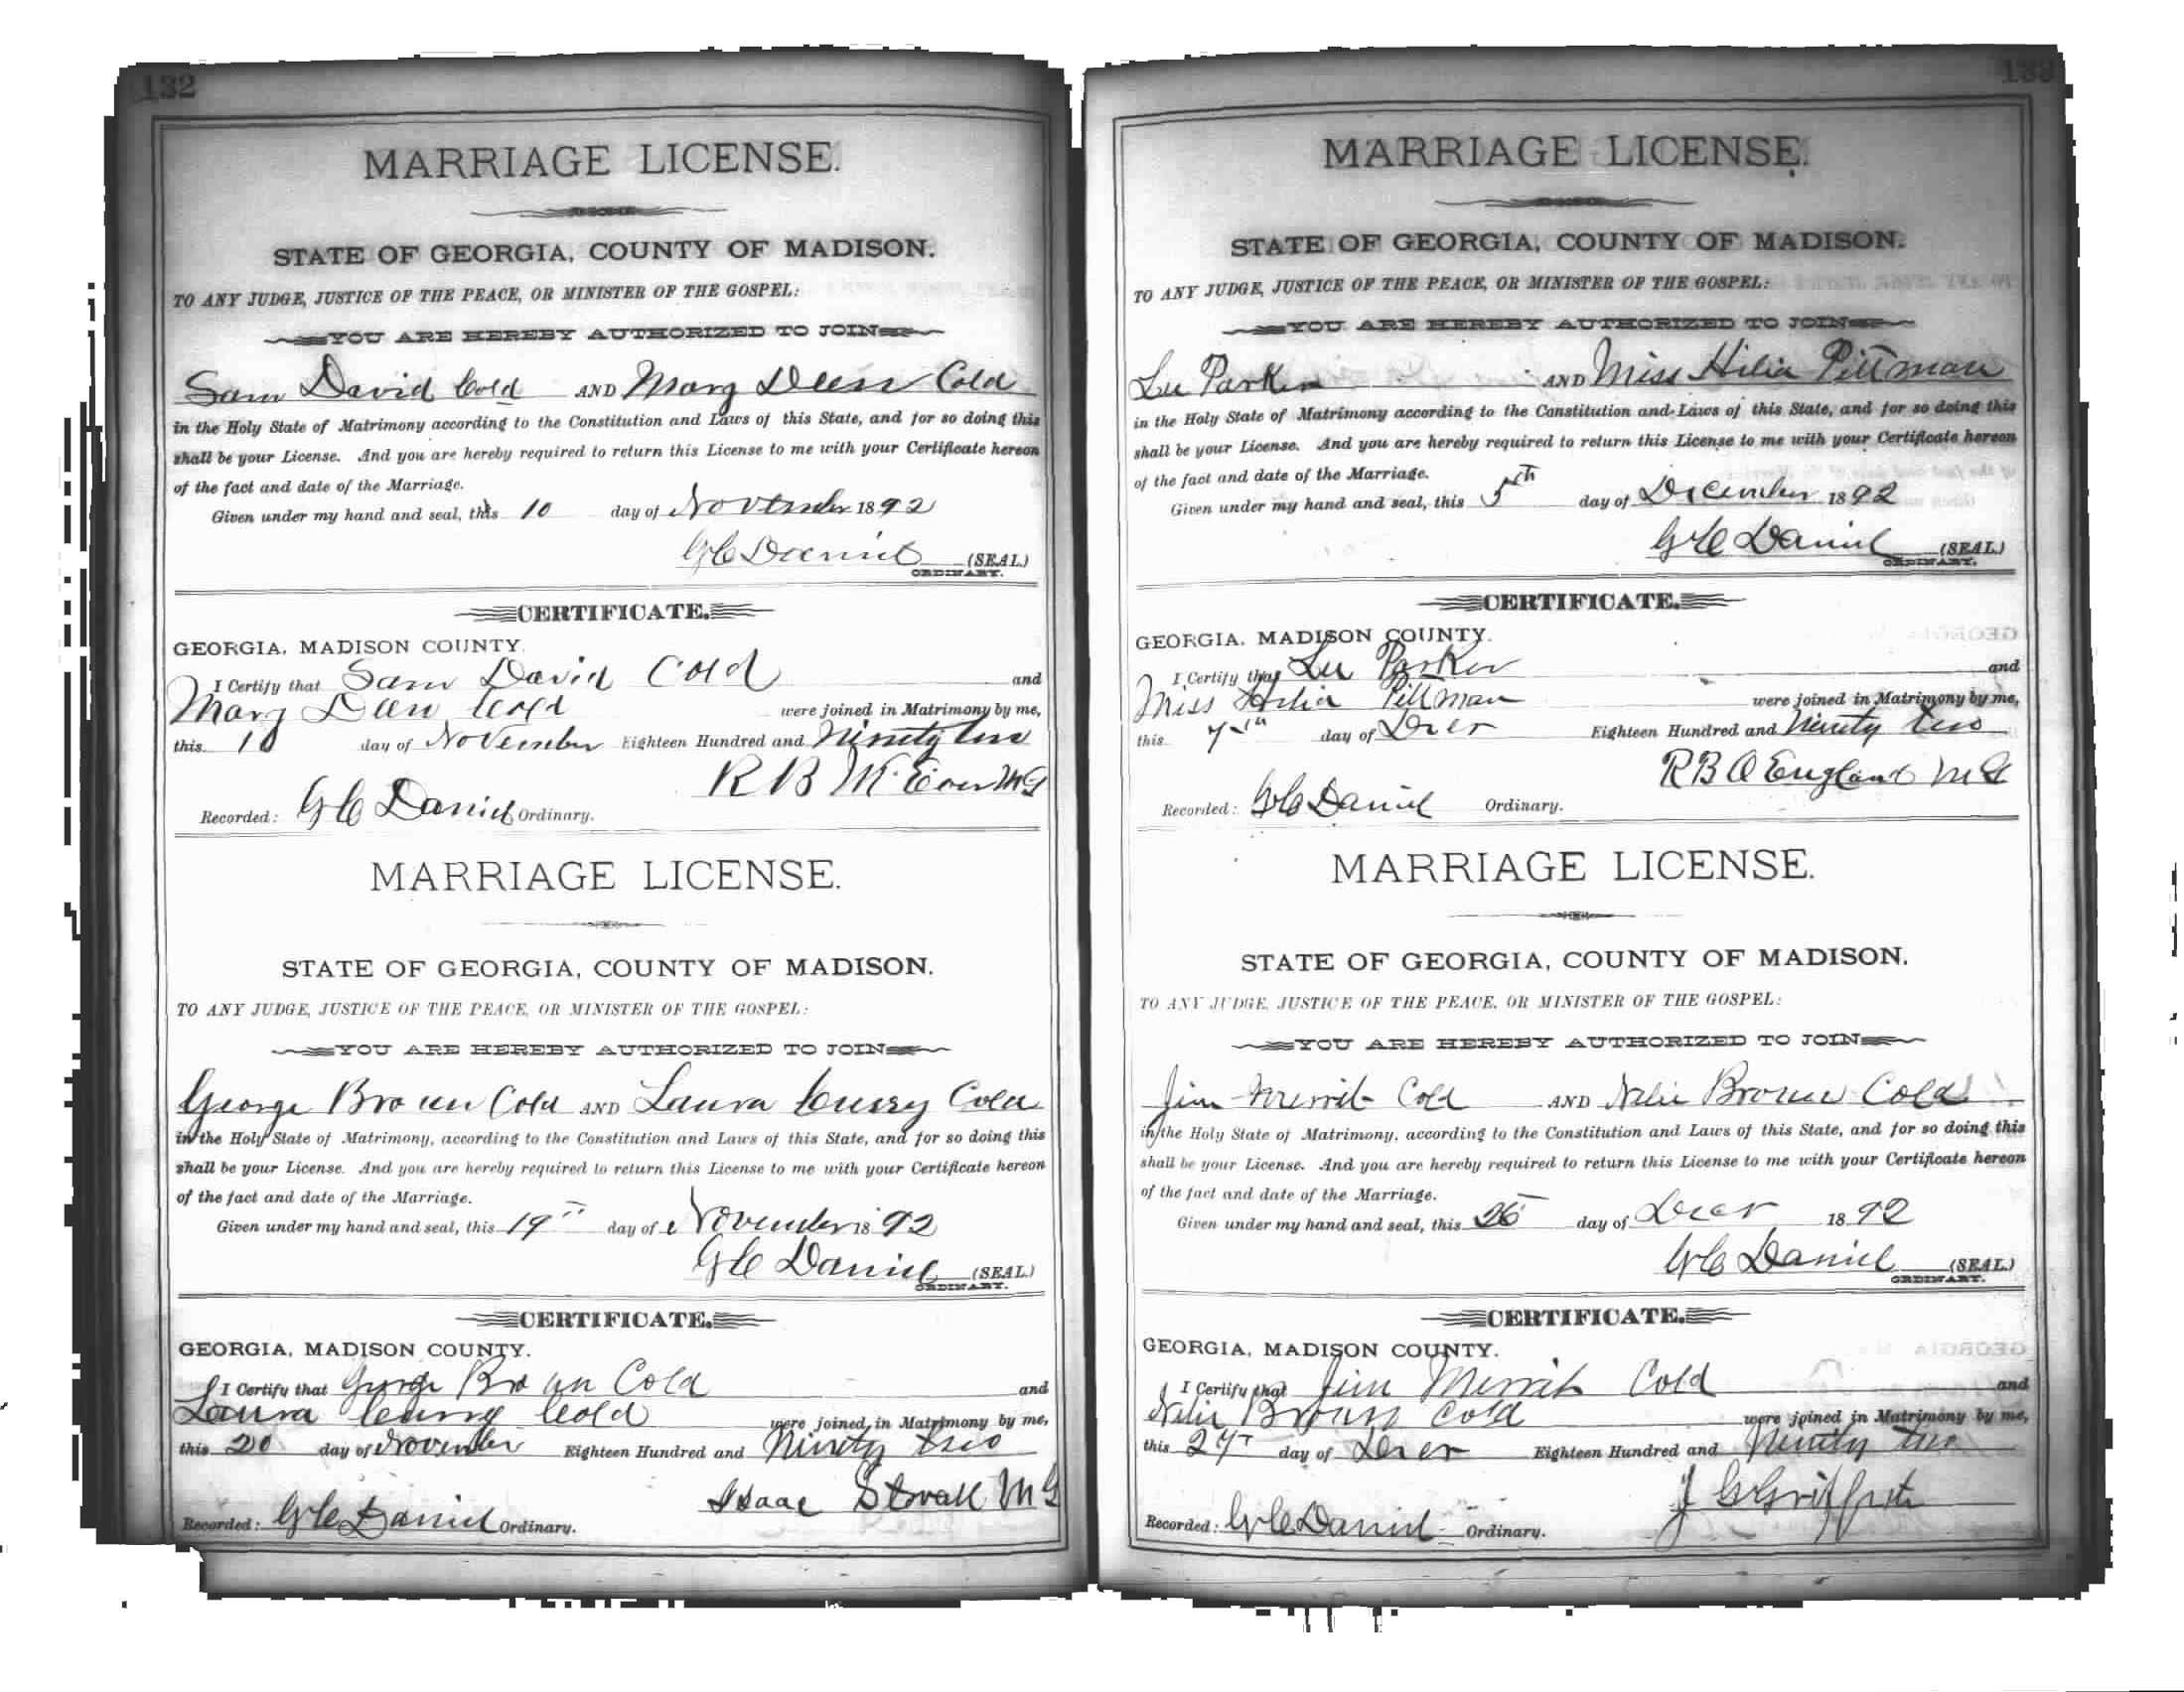 132
MARRIAGE LICENSE.
STATE OF GEORGIA, COUNTY OF MADISON.
TO ANY JUDGE, JUSTICE OF THE PEACE, OR MINISTER OF THE GOSPEL:
YOU ARE HEREBY AUTHORIZED TO JOIN
Sam David Cold AND Mary Deen Cold
in the Holy State of Matrimony according to the Constitution and Laws of this State, and for so doing this
shall be your License. And you are hereby required to return this License to me with your Certificate hereon
of the fact and date of the Marriage.
Given under my hand and seal, this 10 day of November 1892
G C Daniel (SEAL.)
ORDINARY.
CERTIFICATE.
GEORGIA, MADISON COUNTY.
I Certify that Sam David Cold and
Mary Deen Cold were joined in Matrimony by me,
this 10 day of November Eighteen Hundred and Ninety two
R B McEver MG
Recorded: G C Daniel Ordinary.
MARRIAGE LICENSE.
STATE OF GEORGIA, COUNTY OF MADISON.
TO ANY JUDGE, JUSTICE OF THE PEACE, OR MINISTER OF THE GOSPEL:
YOU ARE HEREBY AUTHORIZED TO JOIN
George Brown Cold AND Laura Cold
in the Holy State of Matrimony, according to the Constitution and Laws of this State, and for so doing this
shall be your License. And you are hereby required to return this License to me with your Certificate hereon
of the fact and date of the Marriage.
Given under my hand and seal, this 19 day of November 1892
G C Daniel (SEAL.)
ORDINARY.
CERTIFICATE.
GEORGIA, MADISON COUNTY.
I Certify that George Brown Cold and
Laura Cold were joined in Matrimony by me,
this 20 day of November Eighteen Hundred and Ninety two
Isaac Stovall MG
Recorded: G C Daniel Ordinary.
133
MARRIAGE LICENSE.
STATE OF GEORGIA, COUNTY OF MADISON.
TO ANY JUDGE, JUSTICE OF THE PEACE, OR MINISTER OF THE GOSPEL:
YOU ARE HEREBY AUTHORIZED TO JOIN
Lee Parker AND Miss Pittman
in the Holy State of Matrimony according to the Constitution and Laws of this State, and for so doing this
shall be your License. And you are hereby required to return this License to me with your Certificate hereon
of the fact and date of the Marriage.
Given under my hand and seal, this 5th day of December 1892
G C Daniel (SEAL.)
ORDINARY.
CERTIFICATE.
GEORGIA, MADISON COUNTY.
I Certify that Lee Parker and
Miss Pittman were joined in Matrimony by me,
this 7th day of Decr Eighteen Hundred and Ninety two
R B O England MG
Recorded: G C Daniel Ordinary.
MARRIAGE LICENSE.
STATE OF GEORGIA, COUNTY OF MADISON.
TO ANY JUDGE, JUSTICE OF THE PEACE, OR MINISTER OF THE GOSPEL:
YOU ARE HEREBY AUTHORIZED TO JOIN
Jim Merrit Cold AND Brown Cold
in the Holy State of Matrimony, according to the Constitution and Laws of this State, and for so doing this
shall be your License. And you are hereby required to return this License to me with your Certificate hereon
of the fact and date of the Marriage.
Given under my hand and seal, this 26 day of Decr 1892
G C Daniel (SEAL.)
ORDINARY.
CERTIFICATE.
GEORGIA, MADISON COUNTY.
I Certify that Jim Merrit Cold and
Brown Cold were joined in Matrimony by me,
this 27 day of Decr Eighteen Hundred and Ninety two
J G Griffith
Recorded: G C Daniel Ordinary.